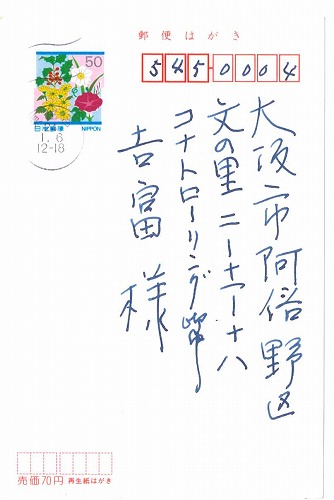 郵便はがき
50
日本郵便 NIPPON
1. 6
12-18
545-0004
大阪市阿倍野区
文の里二ー十一ー十八
コナトローリング
吉富様
売価70円 再生紙はがき